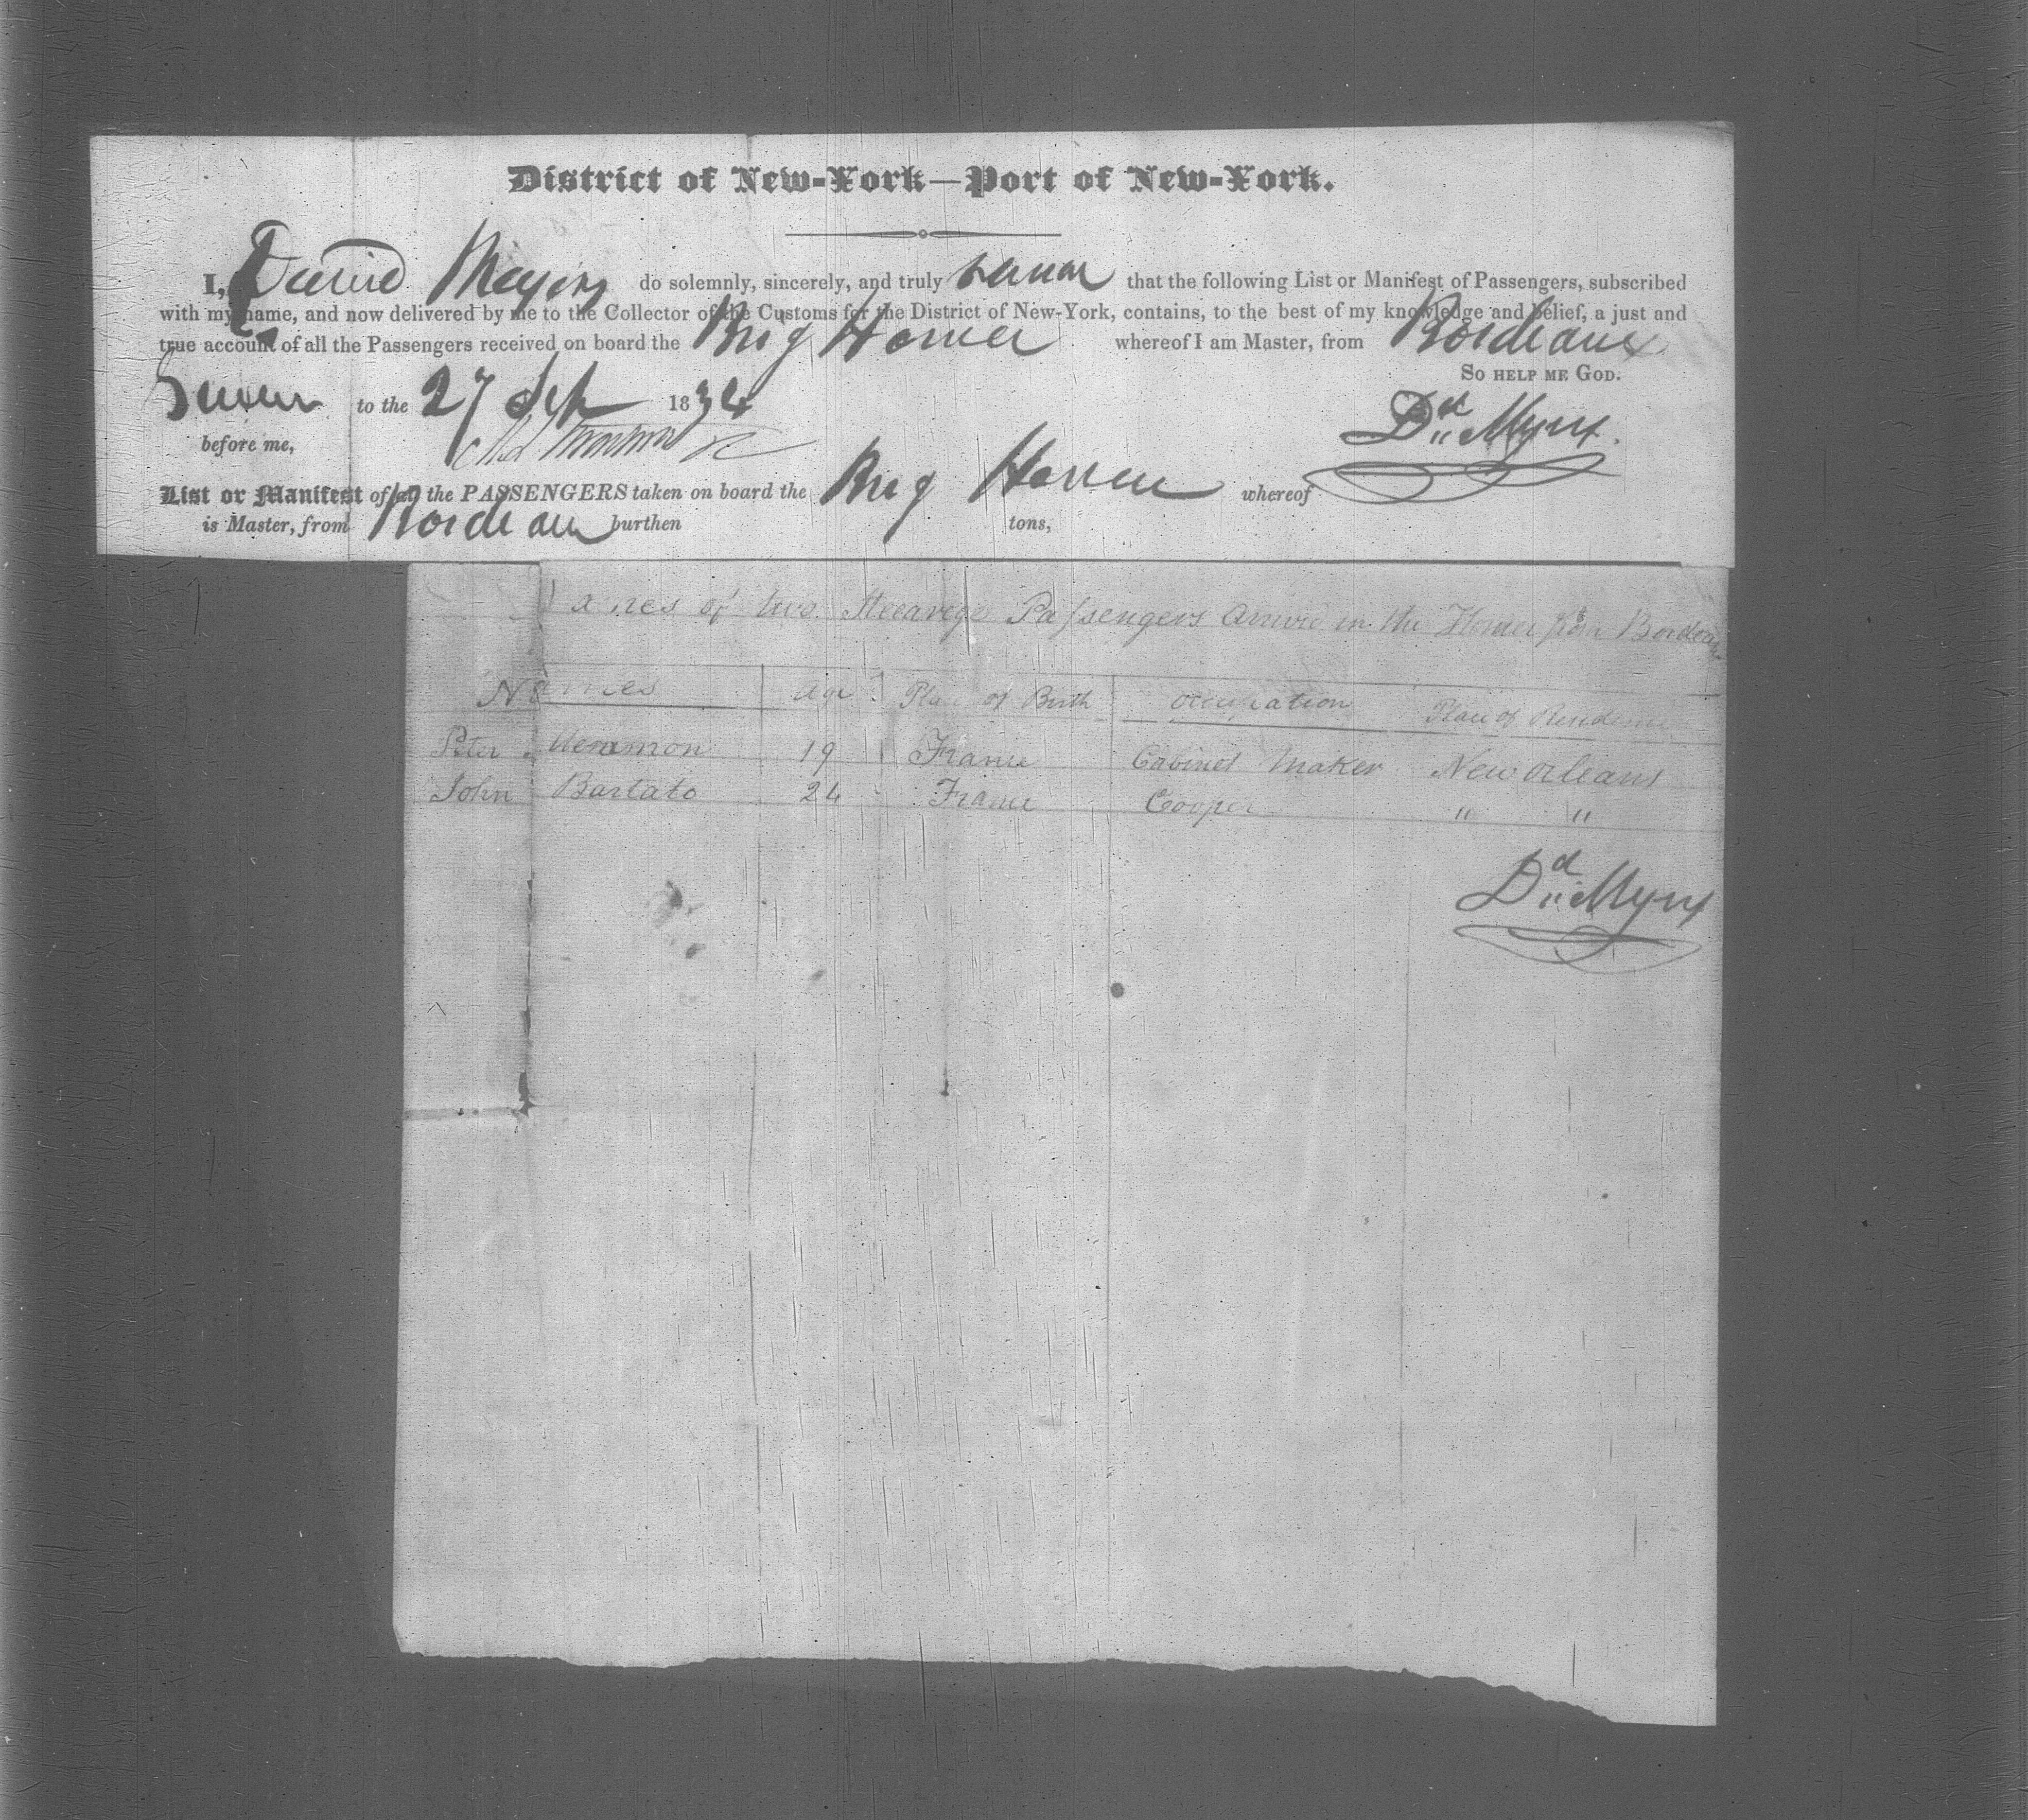 District of New-York—Port of New-York.
I, David Meyers do solemnly, sincerely, and truly swear that the following List or Manifest of Passengers, subscribed
with my name, and now delivered by me to the Collector of the Customs for the District of New-York, contains, to the best of my knowledge and belief, a just and
true account of all the Passengers received on board the Brig Homer whereof I am Master, from Bordeaux
So help me God.
Sworn to the 27 Sep 1834
Dd Myers
before me,
List or Manifest of all the PASSENGERS taken on board the Brig Homer whereof
is Master, from Bordeaux burthen tons,
Names of two Steearege Passengers arrived in the Homer from Bordeaux
Names Age Place of Birth Occupation Place of Residence
Peter 19 France Cabinet Maker New Orleans
John Bartato 24 France Cooper " "
Dd Myers